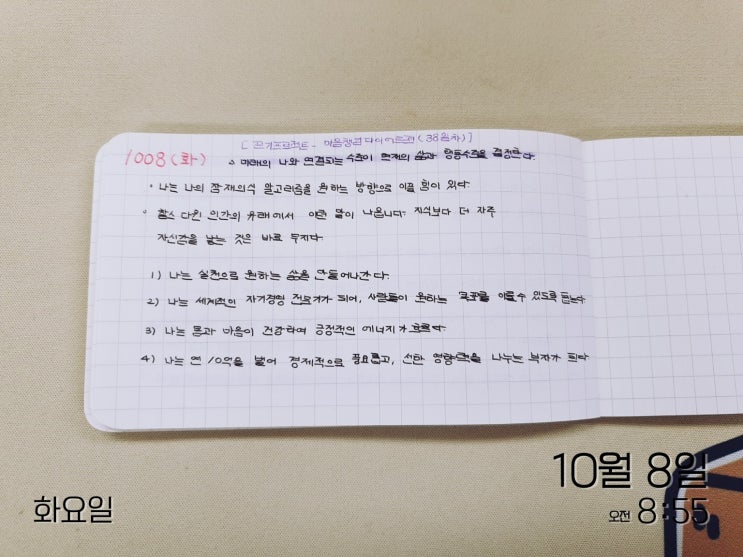 1008(화)
[끈기프로젝트 - 마음챙김 다이어트편 (38일차)]
△ 미래의 나와 연결되는 수준이 현재의 삶과 행동수준을 결정한다.
• 나는 나의 잠재의식 알고리즘을 원하는 방향으로 이끌 힘이 있다.
• 찰스 다윈 인간의 유래에서 이런 말이 나옵니다. 지식보다 더 자주
자신감을 낳는 것은 바로 무지다.
1) 나는 실천으로 원하는 삶을 만들어나간다.
2) 나는 세계적인 자기경영 전문가가 되어, 사람들이 원하는 목표를 이룰수 있도록 돕는다
3) 나는 몸과 마음이 건강하여 긍정적인 에너지가 흐른다
4) 나는 연 10억을 벌어 경제적으로 풍요롭고, 선한 영향력을 나누는 부자가 된다
10월 8일
화요일
오전 8:55